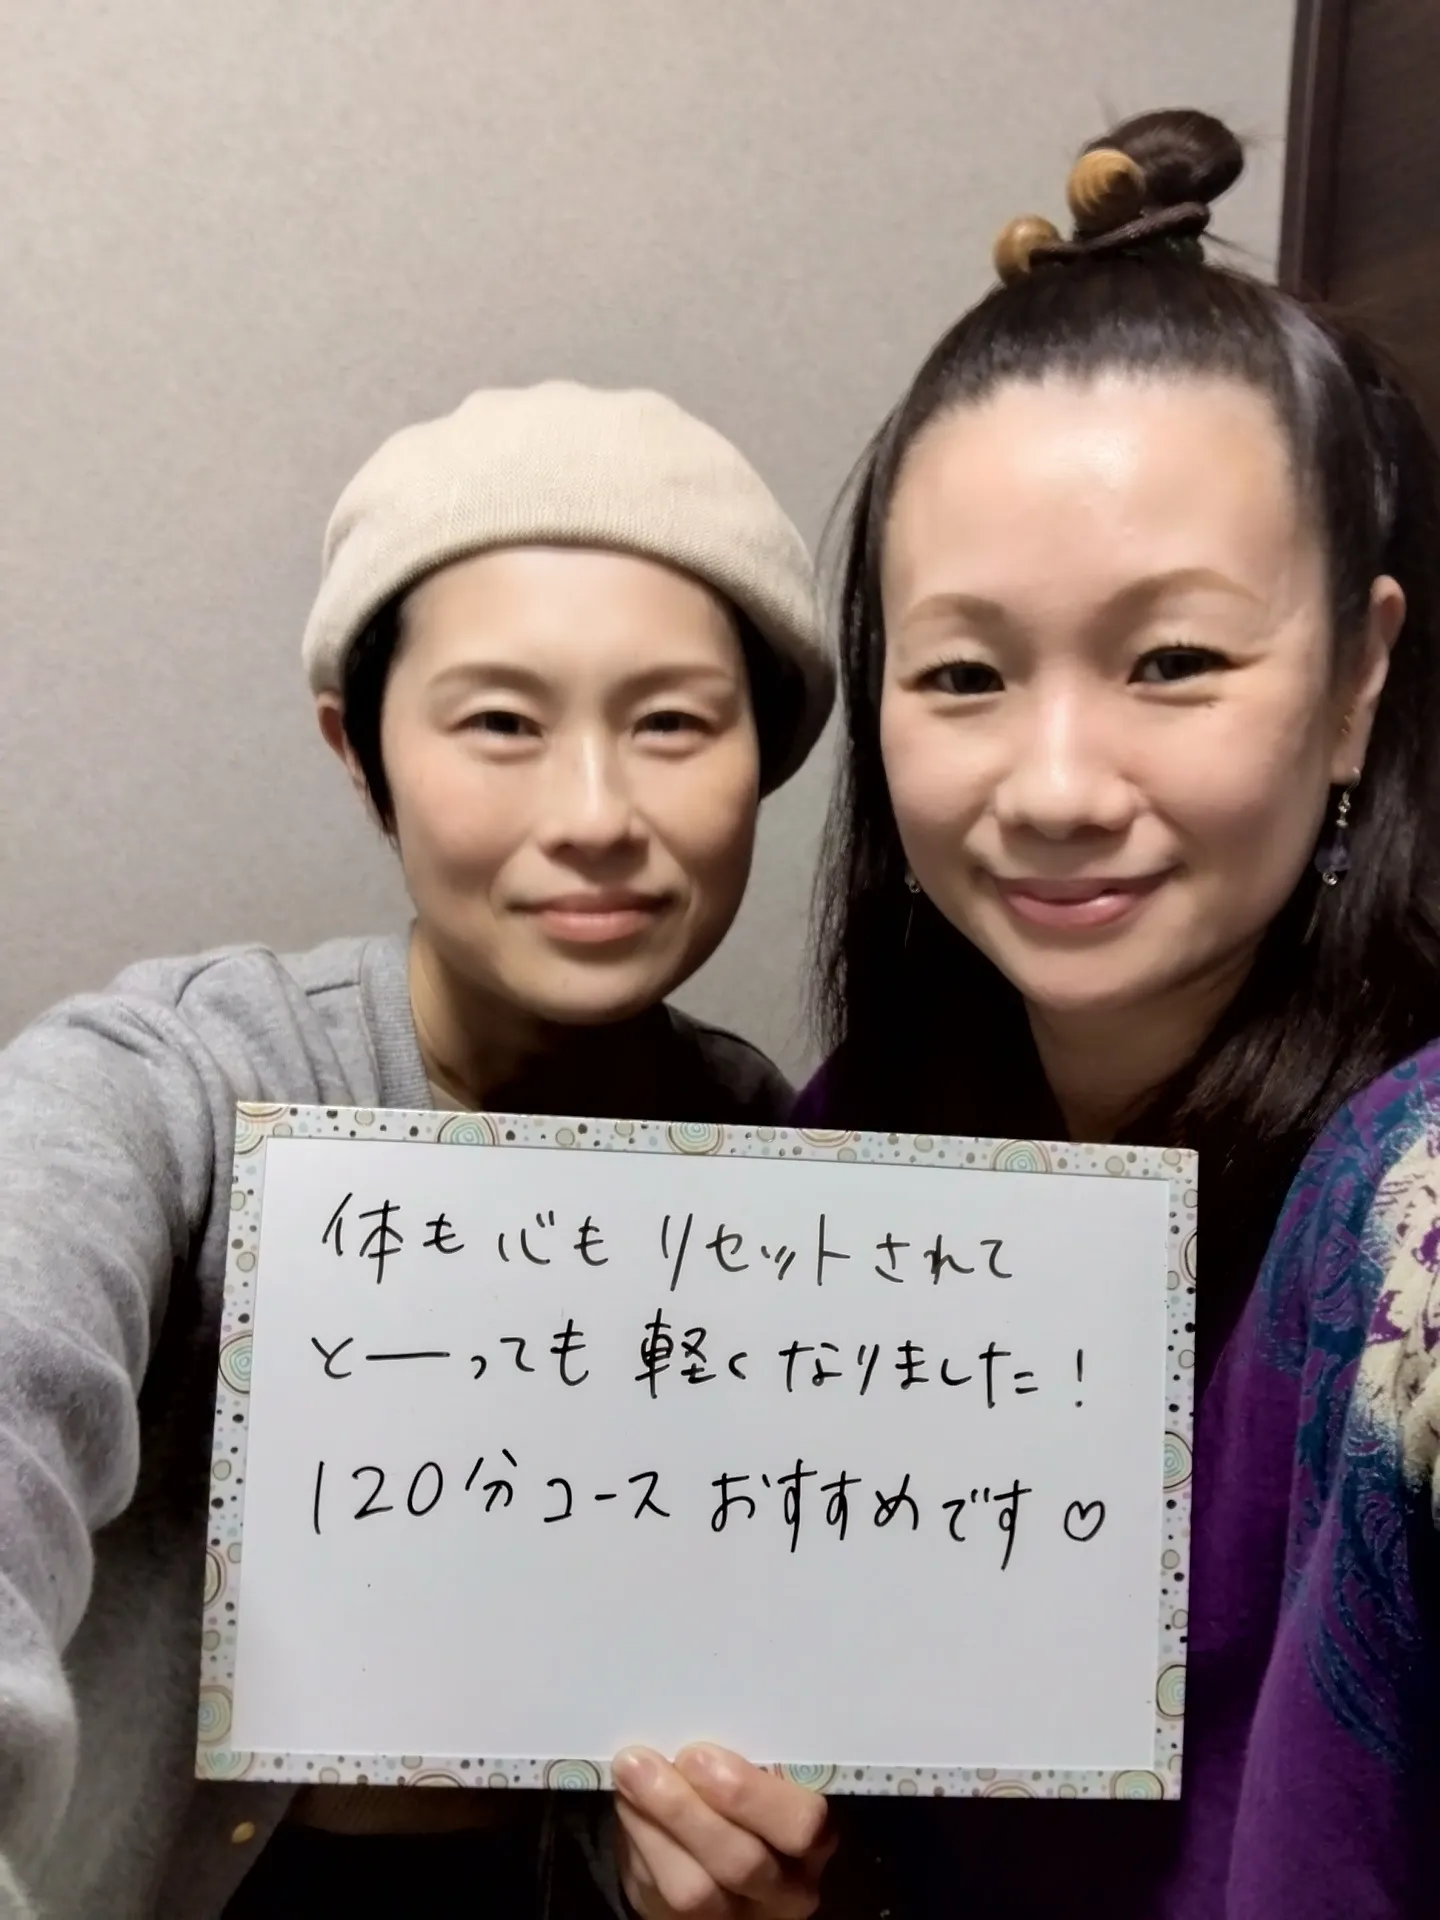 体も心もリセットされて
とーっても軽くなりました！
120分コースおすすめです♡